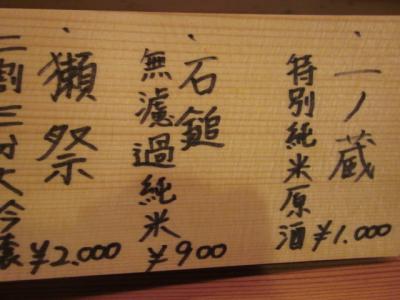 ・一ノ蔵
特別純米原酒 ¥1.000
・石鎚
無濾過純米 ¥900
・獺祭
二割三分 ¥2.000